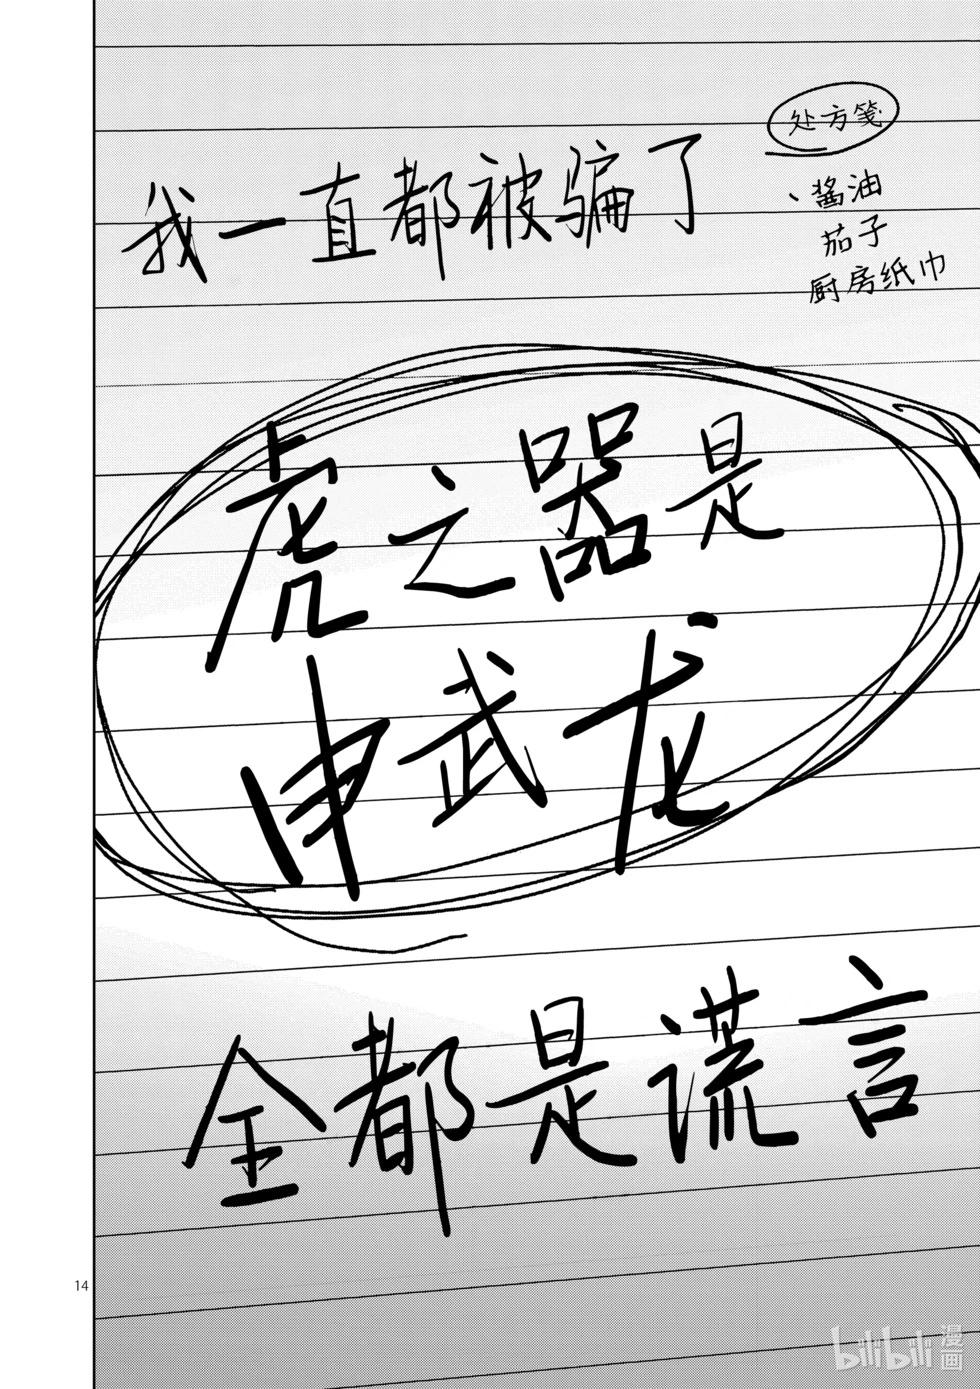 处方笺
我一直都被骗了
、酱油
茄子
厨房纸巾
虎之器是
申武龙
全都是谎言
14
bilibili 漫画